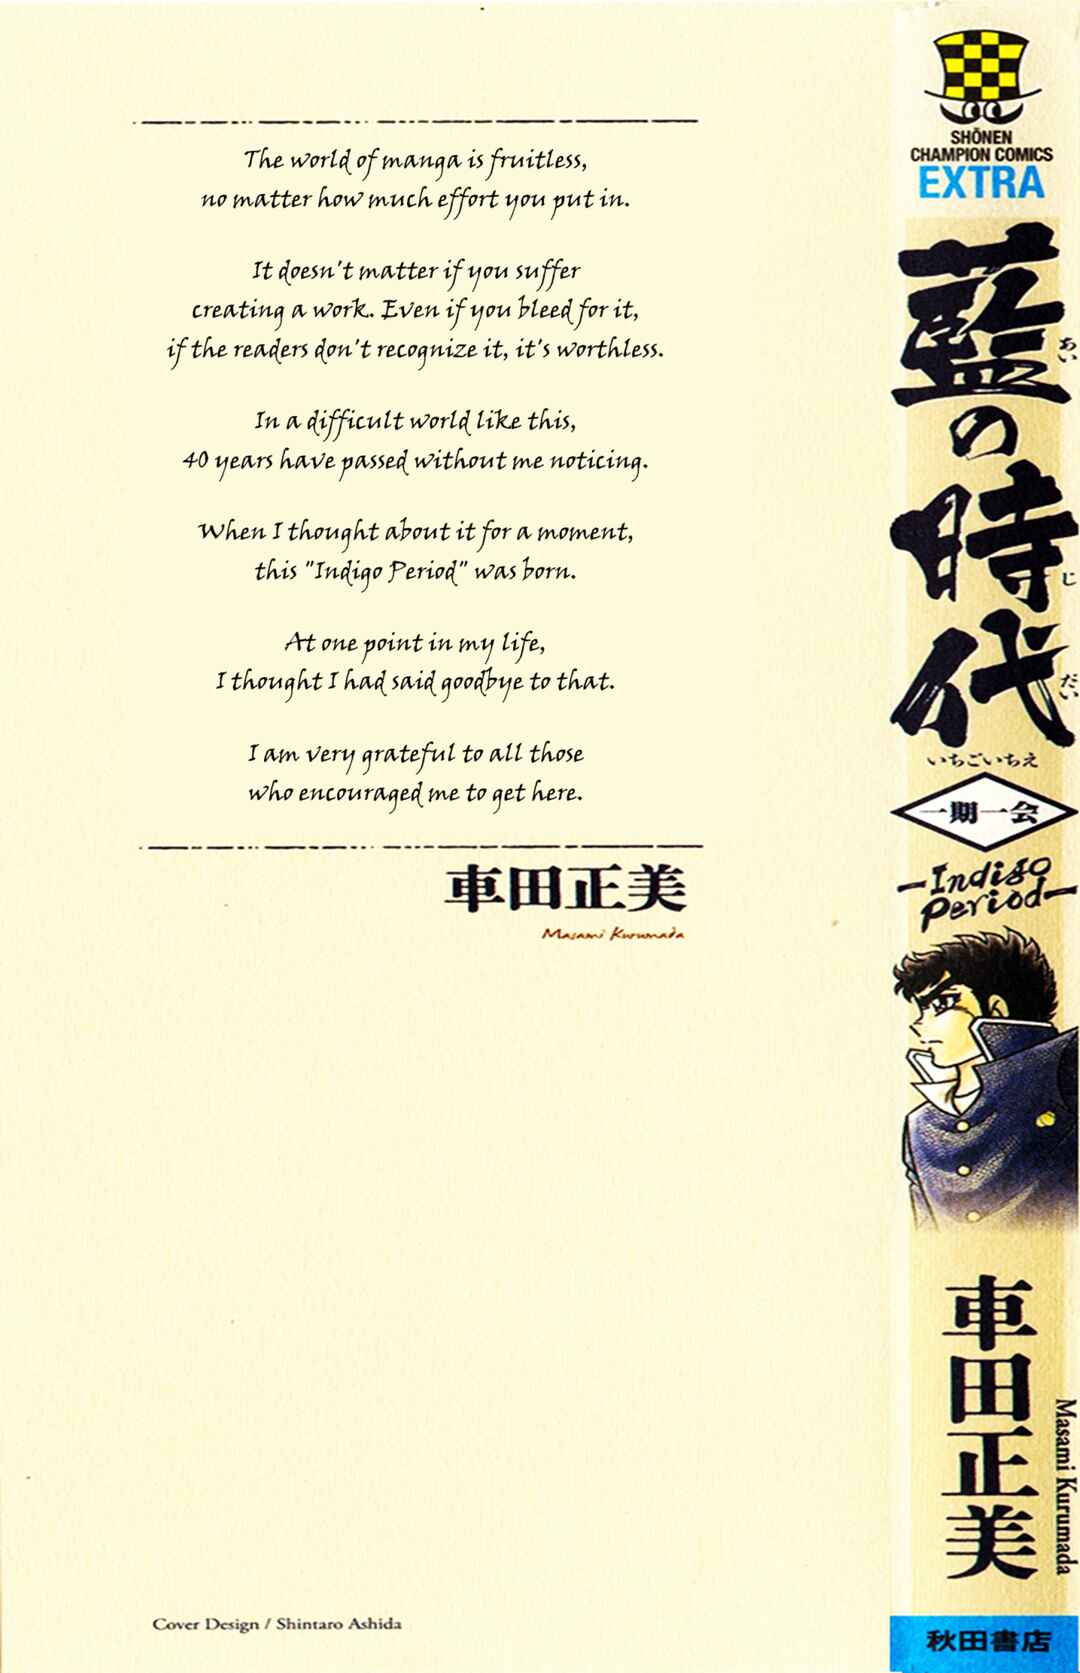 The world of manga is fruitless,
no matter how much effort you put in.
It doesn't matter if you suffer
creating a work. Even if you bleed for it,
if the readers don't recognize it, it's worthless.
In a difficult world like this,
40 years have passed without me noticing.
When I thought about it for a moment,
this "Indigo Period" was born.
At one point in my life,
I thought I had said goodbye to that.
I am very grateful to all those
who encouraged me to get here.
車田正美
Masami Kurumada
Cover Design / Shintaro Ashida
SHŌNEN
CHAMPION COMICS
EXTRA
藍の時代
あい
じ
だい
いちごいちえ
一期一会
-Indigo
Period-
車田正美
Masami Kurumada
秋田書店